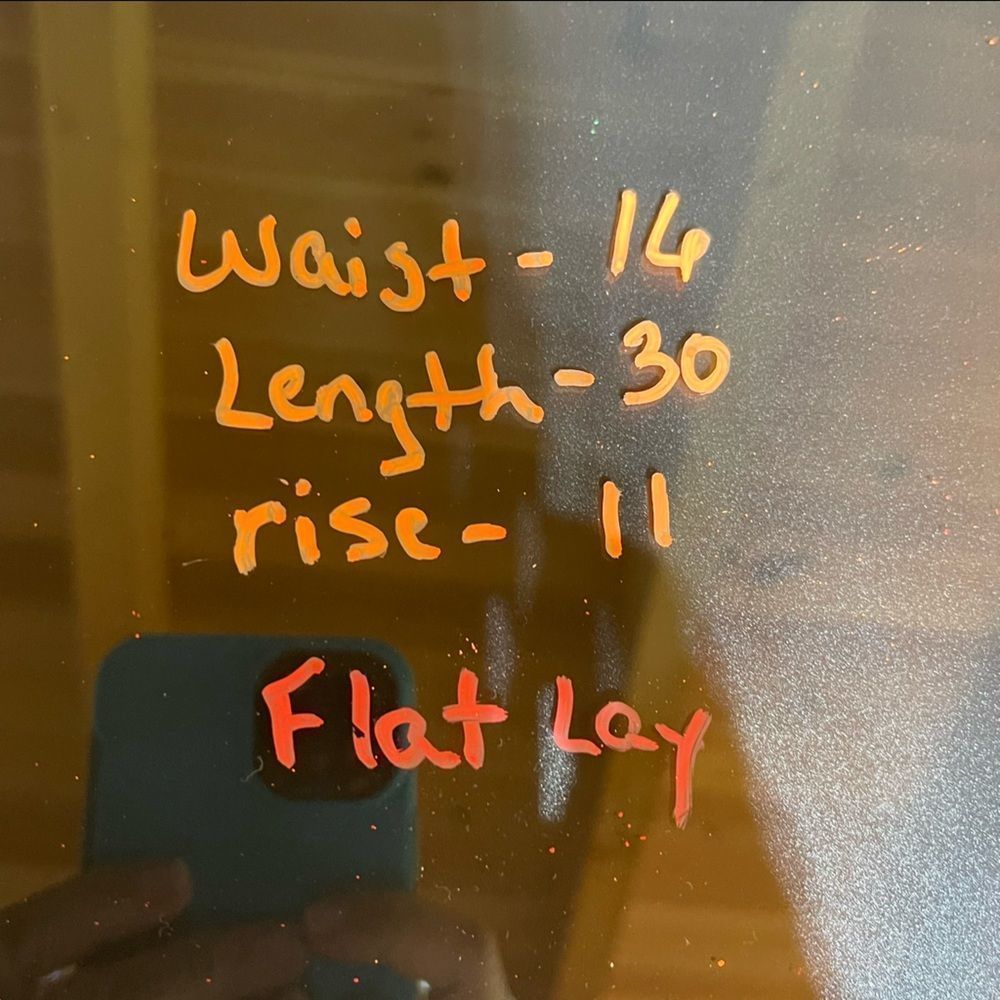 Waist - 14
Length - 30
rise - 11
Flat Lay